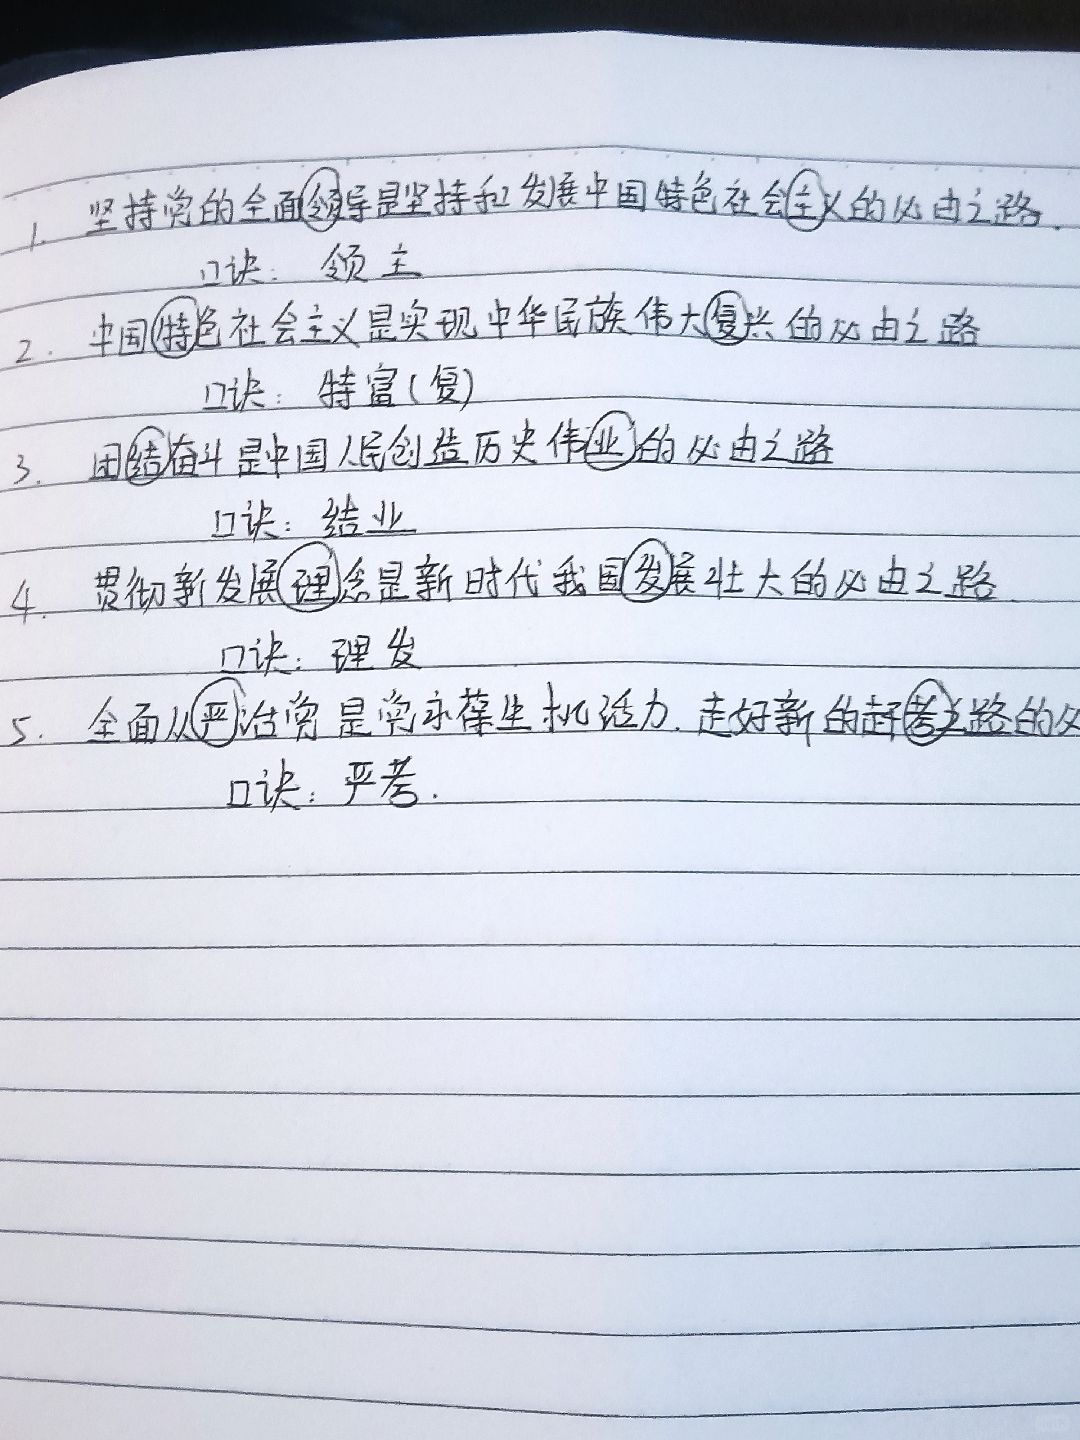 1. 坚持党的全面领导是坚持和发展中国特色社会主义的必由之路.
口诀: 领主
2. 中国特色社会主义是实现中华民族伟大复兴的必由之路
口诀: 特富(复)
3. 团结奋斗是中国人民创造历史伟业的必由之路
口诀: 结业
4. 贯彻新发展理念是新时代我国发展壮大的必由之路
口诀: 理发
5. 全面从严治党是党永葆生机活力.走好新的赶考之路的必
口诀: 严考.